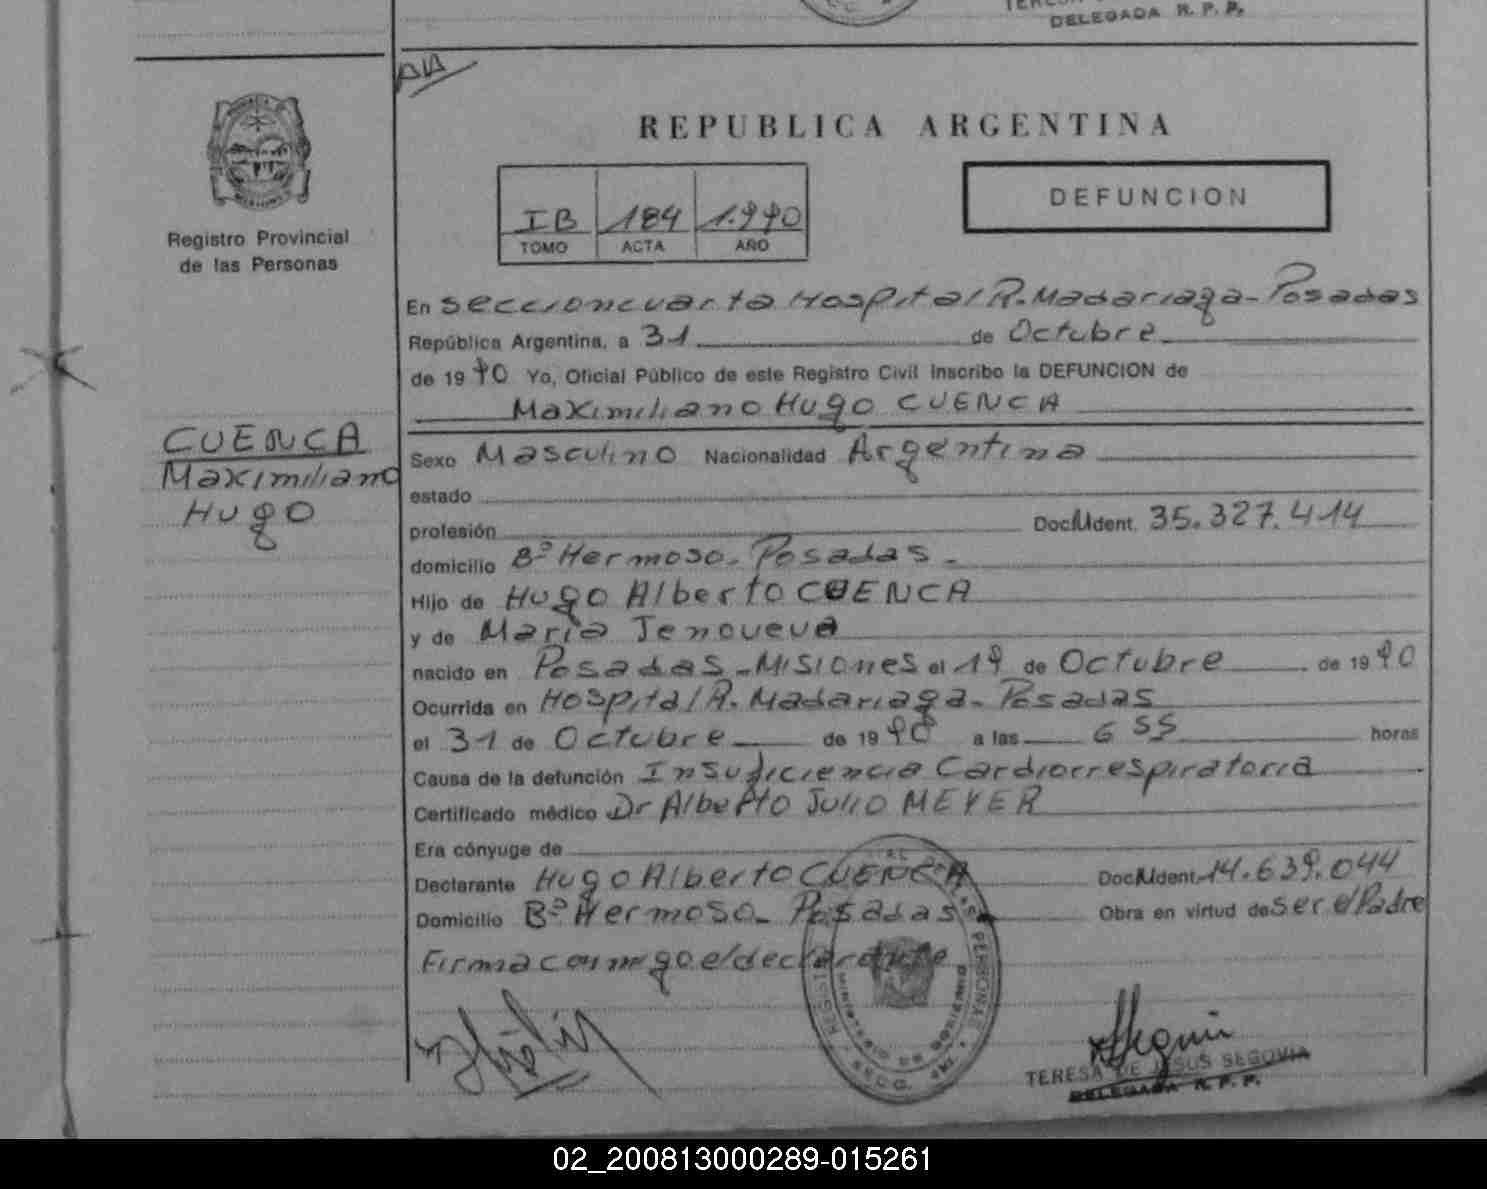 DELEGADA R. P. P.
AA
REPUBLICA ARGENTINA
IB 184 1.990
TOMO ACTA AÑO
DEFUNCION
Registro Provincial
de las Personas
En Seccioncuarta Hospital R. Madariaga - Posadas
República Argentina, a 31 de Octubre
de 1990 Yo, Oficial Público de este Registro Civil Inscribo la DEFUNCION de
Maximiliano Hugo CUENCA
CUENCA
Maximiliano
Hugo
Sexo Masculino Nacionalidad Argentina
estado
profesión Doc. Ident. 35.327.414
domicilio Bº Hermoso - Posadas -
Hijo de Hugo Alberto CUENCA
y de Maria Jenoveva
nacido en Posadas - Misiones el 19 de Octubre de 1990
Ocurrida en Hospital R. Madariaga - Posadas
el 31 de Octubre de 1990 a las 6 55 horas
Causa de la defunción Insuficiencia Cardiorrespiratoria
Certificado médico Dr Alberto Julio MEYER
Era cónyuge de
Declarante Hugo Alberto CUENCA Doc. Ident. 14.639.044
Domicilio Bº Hermoso - Posadas - Obra en virtud de ser el Padre
Firma conmigo el declarante
TERESA DE JESUS SEGOVIA
DELEGADA R. P. P.
02_200813000289-015261